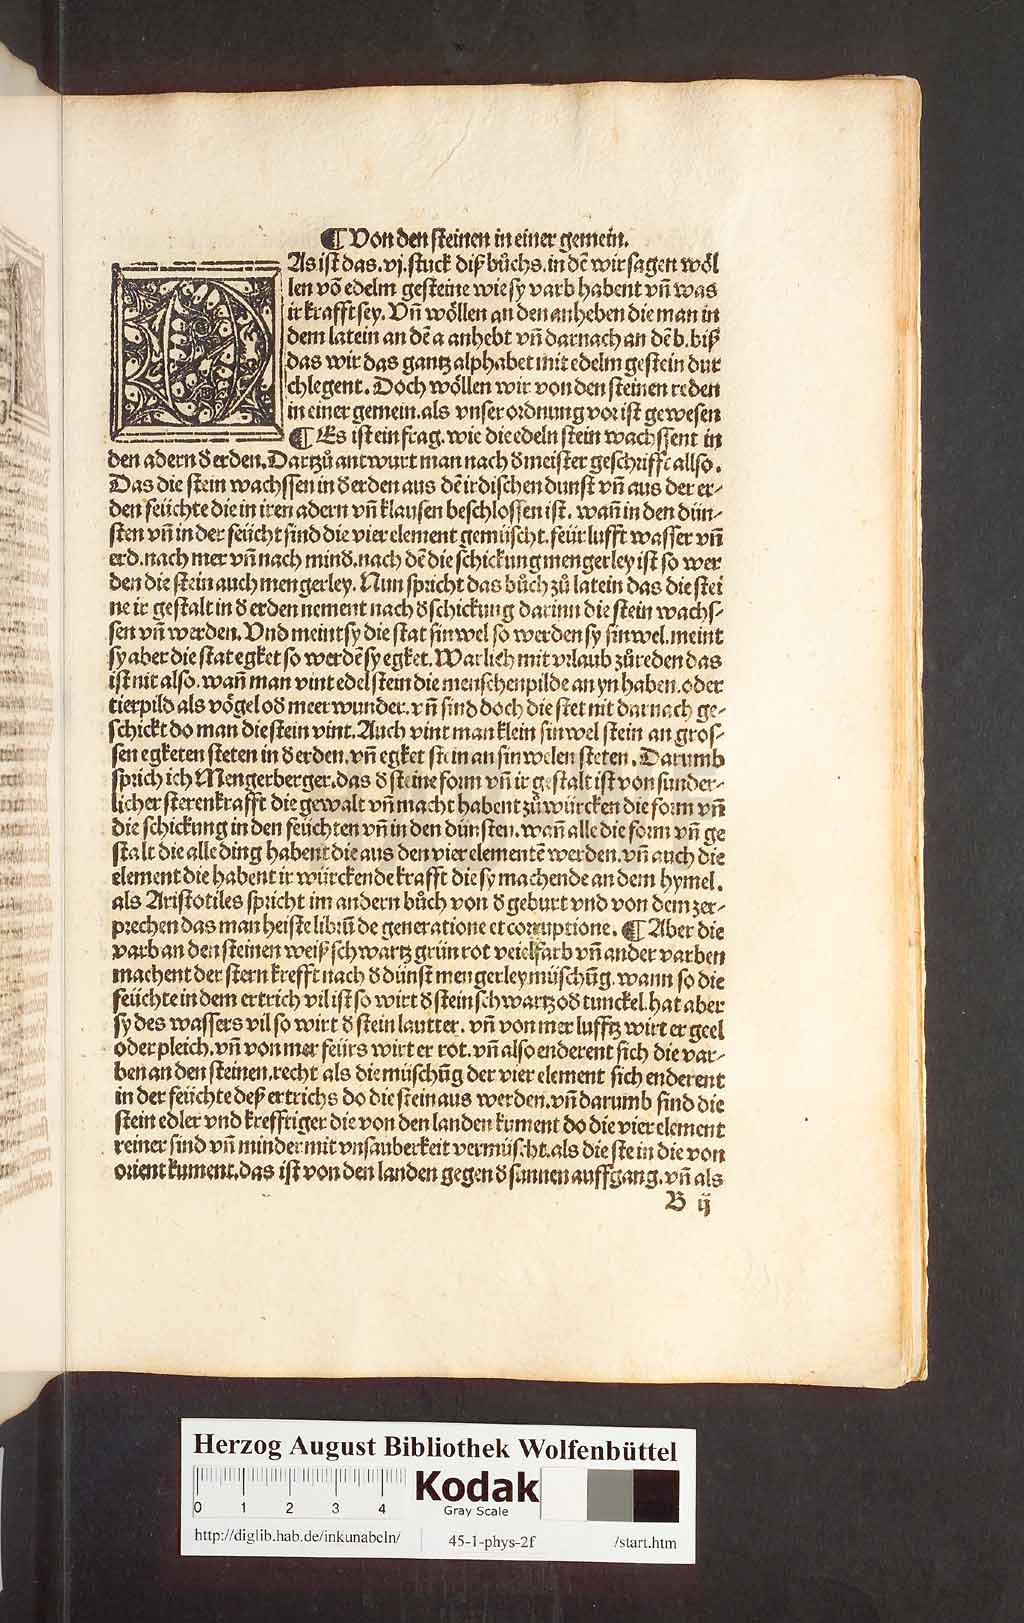 ¶ Von den steinen in einer gemein.
DAs ist das .vj. stuck diß bůchs. in dē wir sagen wöl
len võ edelm gesteine wie sy varb habent vñ was
ir krafft sey. Vñ wöllen an den anheben die man in
dem latein an dē a anhebt vñ darnach an dē b. biß
das wir das gantz alphabet mit edelm gestein dur
chlegent. Doch wöllen wir von den steinen reden
in einer gemein. als vnser ordnung vor ist gewesen
¶ Es ist ein frag. wie die edeln stein wachssent in
den adern đ erden. Dartzů antwurt man nach đ meister geschrifft allso.
Das die stein wachssen in đ erden aus dē irdischen dunst vñ aus der er⸗
den feüchte die in iren adern vñ klausen beschlossen ist. wañ in den dün⸗
sten vñ in der feücht sind die vier element gemüscht. feür lufft wasser vñ
erd. nach mer vñ nach minđ. nach dē die schickung mengerley ist so wer
den die stein auch mengerley. Nun spricht das bůch zů latein das die stei
ne ir gestalt in đ erden nement nach đ schickung darinn die stein wachs⸗
sen vñ werden. Vnd meint sy die stat sinwel so werden sy sinwel. meint
sy aber die stat egket so werdē sy egket. Warlich mit vrlaub zů reden das
ist nit also. wañ man vint edel stein die menschen pilde an yn haben. oder
tierpild als vögel ođ meerwunder. vñ sind doch die stet nit darnach ge⸗
schickt do man die stein vint. Auch vint man klein sinwel stein an gros⸗
sen egketen steten in đ erden. vñ egket stein an sinwelen steten. Darumb
sprich ich Mengerberger. das đ steine form vñ ir gestalt ist von sunder⸗
licher sterenkrafft die gewalt vñ macht habent zů würcken die form vñ
die schickung in den feüchten vñ in den dünsten. wañ alle die form vñ ge
stalt die alle ding habent die aus den vier elementē werden. vñ auch die
element die habent ir würckende krafft die sy machende an dem hymel.
als Aristotiles spricht im andern bůch von đ geburt vnd von dem zer⸗
prechen das man heiste librū de generatione et corruptione. ¶ Aber die
varb an den steinen weiß schwartz grün rot veielfarb vñ ander varben
machent der stern krefft nach đ dünst mengerley müschūg. wann so die
feüchte in dem ertrich vil ist so wirt đ stein schwartz ođ tunckel. hat aber
sy des wassers vil so wirt đ stein lautter. vñ von mer lufftz wirt er geel
oder pleich. vñ von mer feürs wirt er rot. vñ also enderent sich die var⸗
ben an den steinen. recht als die müschūg der vier element sich enderent
in der feüchte deß ertrichs do die stein aus werden. vñ darumb sind die
stein edler vnd krefftiger die von den landen kument do die vier element
reiner sind vñ minder mit vnsauberkeit vermüscht. als die stein die von
orient kument. das ist von den landen gegen đ sunnen auffgang. vñ als
B ij
Herzog August Bibliothek Wolfenbüttel
0 1 2 3 4
Kodak
Gray Scale
http://diglib.hab.de/inkunabeln/ 45-1-phys-2f /start.htm